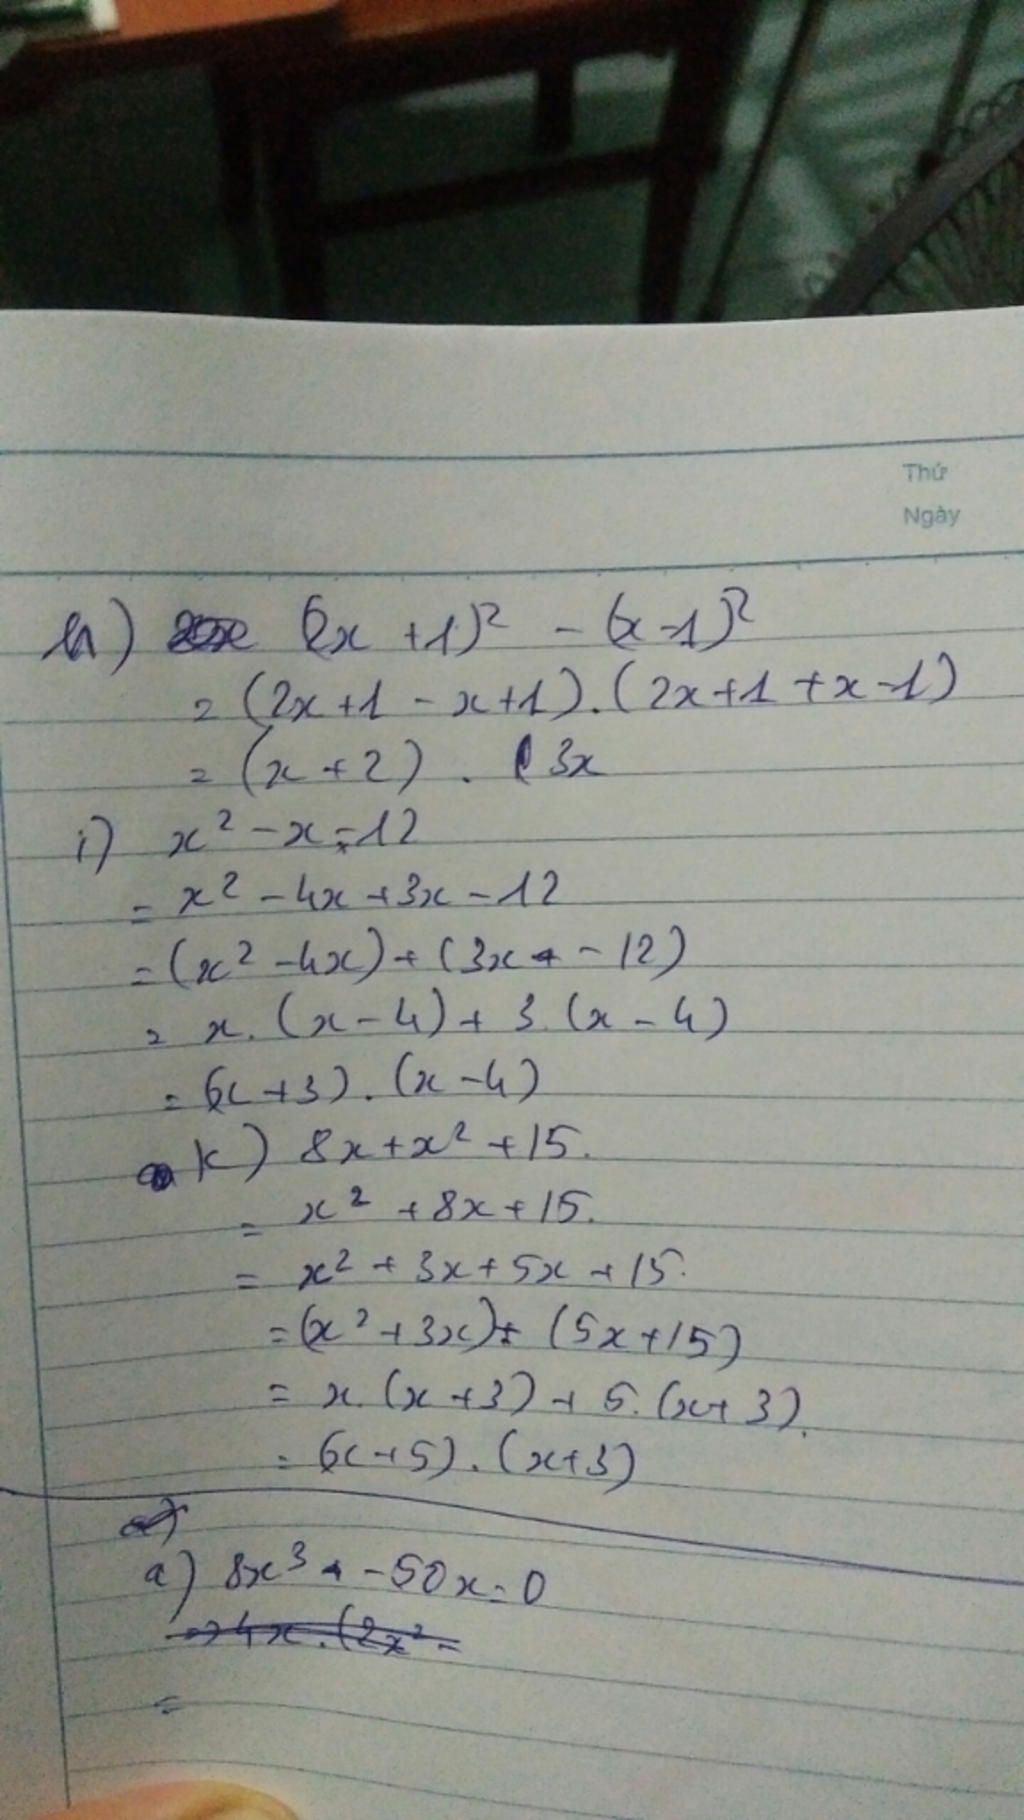 Thứ
Ngày
h) (2x +1)² - (x-1)²
= (2x+1 - x+1).(2x+1+x-1)
= (x+2) . 3x
i) x² - x - 12
= x² - 4x + 3x - 12
= (x² - 4x) + (3x - 12)
= x.(x-4) + 3.(x-4)
= (x+3).(x-4)
k) 8x + x² + 15.
= x² + 8x + 15.
= x² + 3x + 5x + 15.
= (x² + 3x) + (5x+15)
= x.(x+3) + 5.(x+3).
= (x+5).(x+3)
a) 8x³ - 50x = 0
=> 4x.(2x² -
=